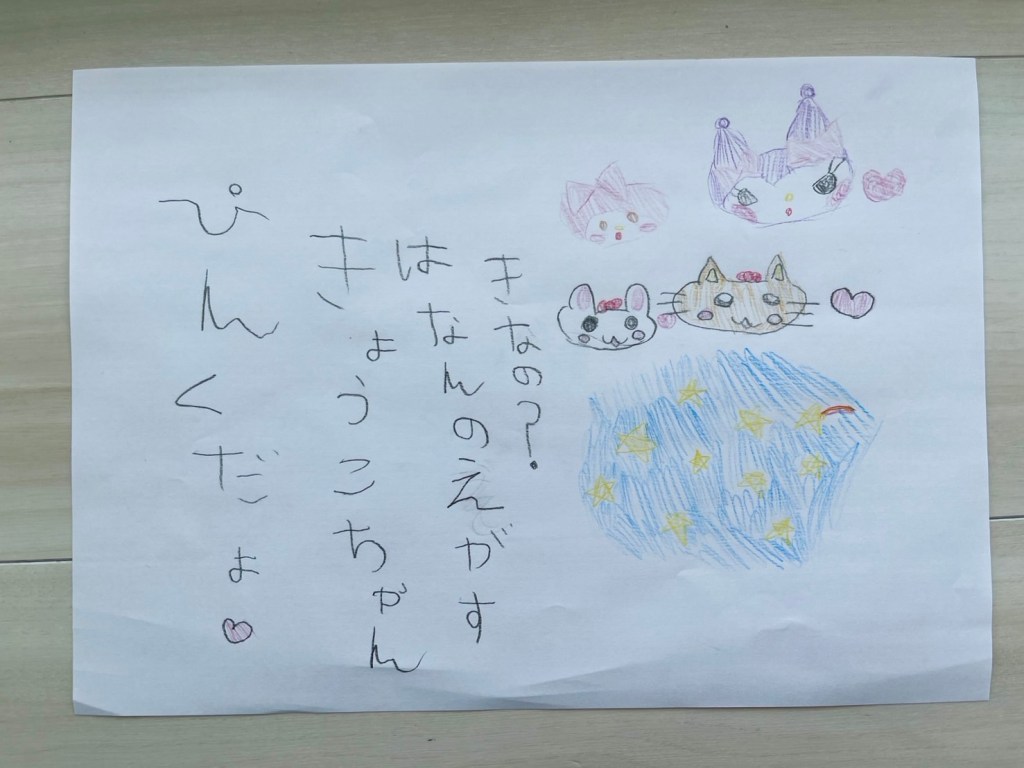 ぴんくだよ♡
きょうこちゃん
はなんのえがす
きなの?